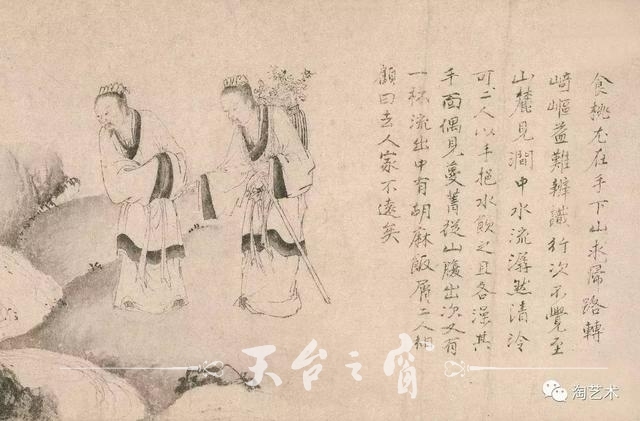 食桃尤在手下山求歸路轉
崎嶇益難辨識行次不覺至
山麓見澗中水流潺然清冷
可二人以手挹水飲之且各澡其
手面偶見蔓菁從山腹出次又有
一杯流出中有胡麻飯屑二人相
顧曰去人家不遠矣
天台之窗
淘艺术